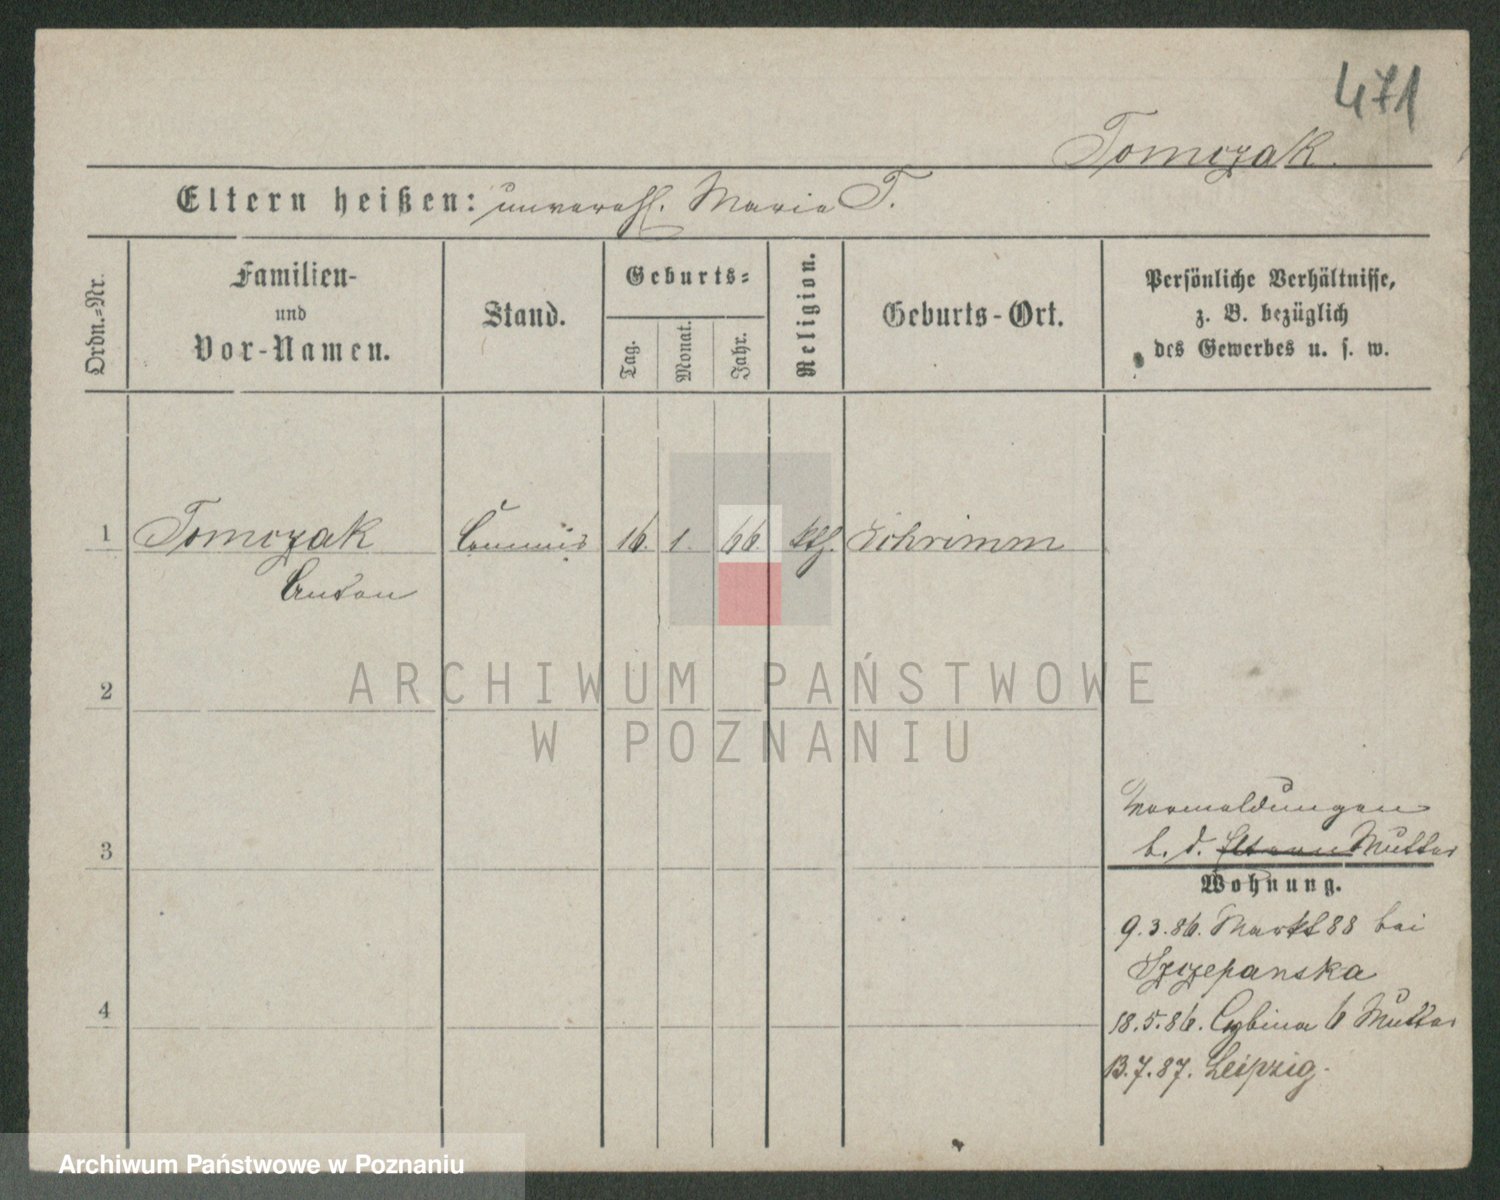 471
Tomczak.
Eltern heißen: unverehl. Maria T.
Ordn.-Nr.
Familien-
und
Vor-Namen.
Stand.
Geburts-
Tag.
Monat.
Jahr.
Religion.
Geburts-Ort.
Persönliche Verhältnisse,
z. B. bezüglich
des Gewerbes u. s. w.
1 Tomczak Commis 16. 1. 66 kth. Schrimm
Anton
2
ARCHIWUM PAŃSTWOWE
W POZNANIU
3
Vormeldungen
b. d. Eltern Mutter
Wohnung.
9.3.86. Markt 88 bei
Szczepanska
4
18.5.86. Cybina 6 Mutter
13.7.87. Leipzig.
Archiwum Państwowe w Poznaniu